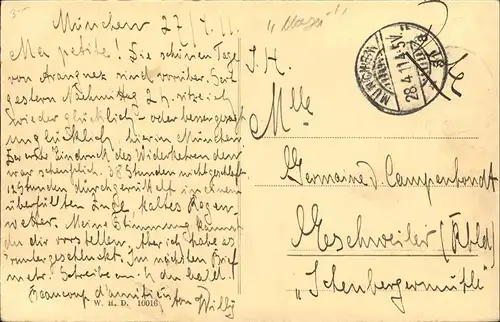 München 27/4.11.
Ma petite! Die schönen Tage
von Aranguez sind vorüber. Seit
gestern Nachmittag 2 h. sitze ich
wieder glücklich – oder besser gesagt
unglücklich hier in München
Der erste Eindruck des Wiederkehrenden
war scheußlich. 38 Stunden nicht geschlafen
12 Stunden durchgerüttelt in einem
überfüllten Zuge kaltes Regen-
wetter. Meine Stimmung kannst
du dir vorstellen, aber ich habe es
runtergeschluckt. Im nächsten Brief
mehr. Schreibe du bald!
Beaucoup d'amitiés von Willy
W. H. D. 10016
MÜNCHEN
28.4.11 4-5N.
S. H.
Mlle
Germaine v. Campenhoudt
Meschweiler (Rhld)